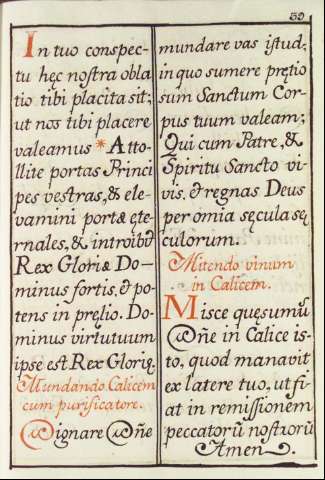 39
In tuo conspec-
tu hęc nostra obla
tio tibi placita sit;
ut nos tibi placere
valeamus * Atto-
llite portas Princi
pes vestras, & ele-
vamini portæ ęte-
rnales, & introibit
Rex Gloriæ Do-
minus fortis, & po-
tens in pręlio. Do-
minus virtutuum
ipse est Rex Glorię
Mundando Calicem
cum purificatore.
Dignare Dñe
mundare vas istud;
in quo sumere pretio
sum Sanctum Cor-
pus tuum valeam;
Qui cum Patre, &
Spiritu Sancto vi-
vis, & regnas Deus
per omia sęcula sę
culorum.
Mitendo vinum
in Calicem.
Misce quęsumũ
Dñe in Calice is-
to, quod manavit
ex latere tuo, ut fi
at in remissionem
peccatorũ nostrorũ
Amen